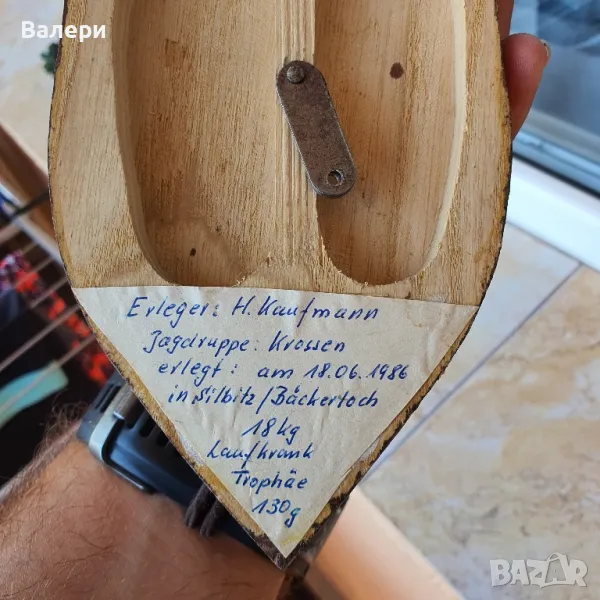 Валери
Erleger: H. Kaufmann
Jagdruppe: Krossen
erlegt: am 18.06.1986
in Silbitz/Bäckertoch
18 kg
Laufkrank
Trophäe
130g
BAZAR